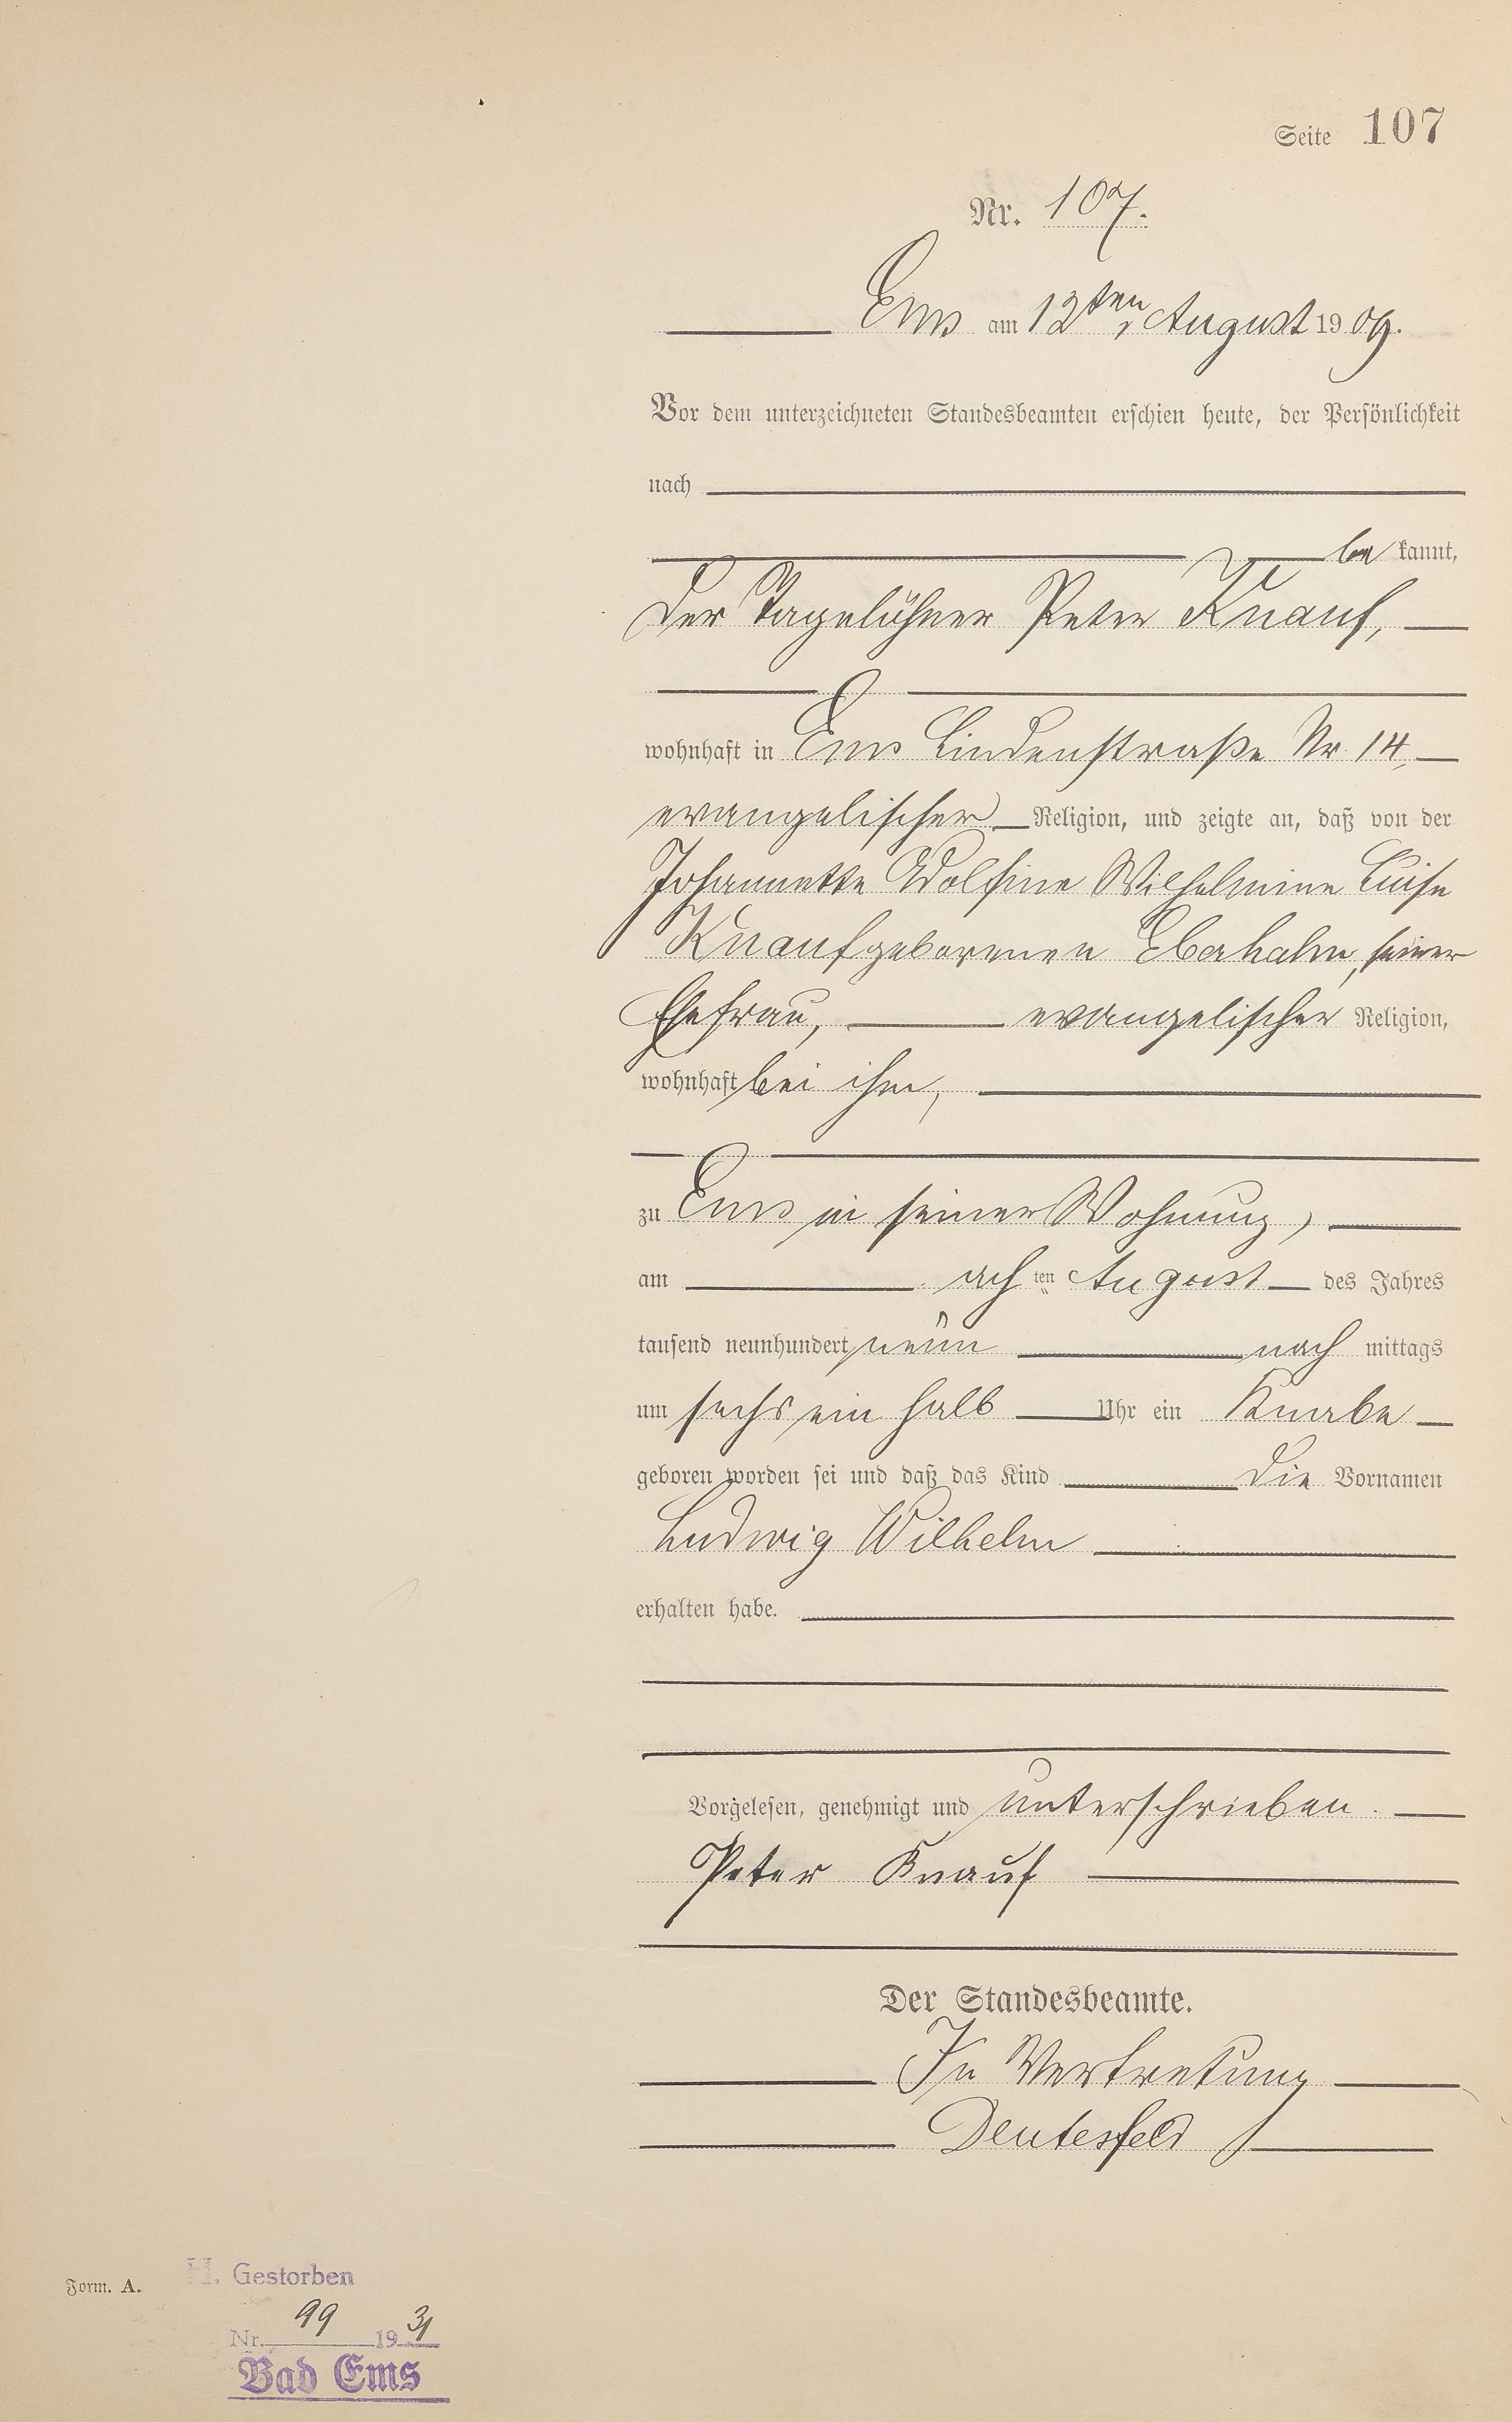 Seite 107
Nr. 107.
Ems am 12ten August 1909.
Vor dem unterzeichneten Standesbeamten erschien heute, der Persönlichkeit
nach
bekannt,
der Tagelöhner Peter Knauf,
wohnhaft in Ems Lindenstraße Nr 14,
evangelischer Religion, und zeigte an, daß von der
Johannette Adolfine Wilhelmine Luise
Knauf geborenen Eberhahn, seiner
Ehefrau, evangelischer Religion,
wohnhaft bei ihm,
zu Ems in seiner Wohnung,
am achten August des Jahres
tausend neunhundert neun nachmittags
um sechs ein halb Uhr ein Knabe
geboren worden sei und daß das Kind die Vornamen
Ludwig Wilhelm
erhalten habe.
Vorgelesen, genehmigt und unterschrieben.
Peter Knauf
Der Standesbeamte.
In Vertretung
Deutesfeld
Form. A.
H. Gestorben
Nr. 99 1931
Bad Ems